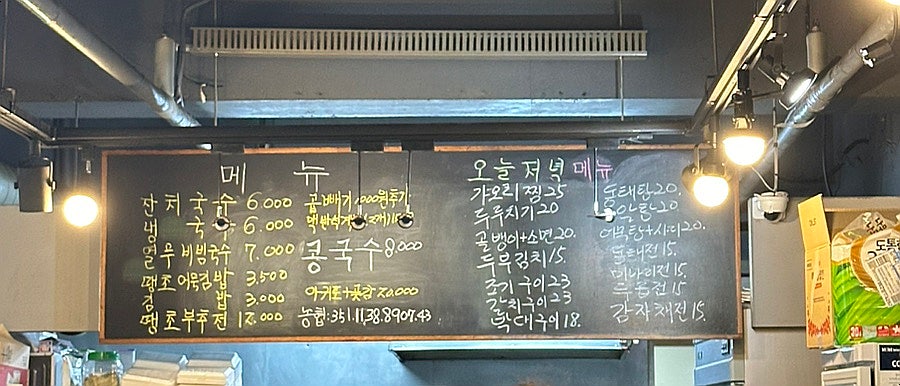 메 뉴
잔치국수 6.000
냉국수 6.000
열무비빔국수 7.000
땡초어묵김밥 3.500
김밥 3.000
땡초부추전 12.000
곱빼기
콩국수 8,000
농협:351.1138.8907.43
오늘저녁메뉴
가오리찜 25
두루치기 20
골뱅이+소면 20.
두부김치 15.
조기구이 23
갈치구이 23
먹태구이 18.
동태탕 20.
알탕 20
동태전 15.
미나리전 15.
두릅전 15.
감자채전 15.